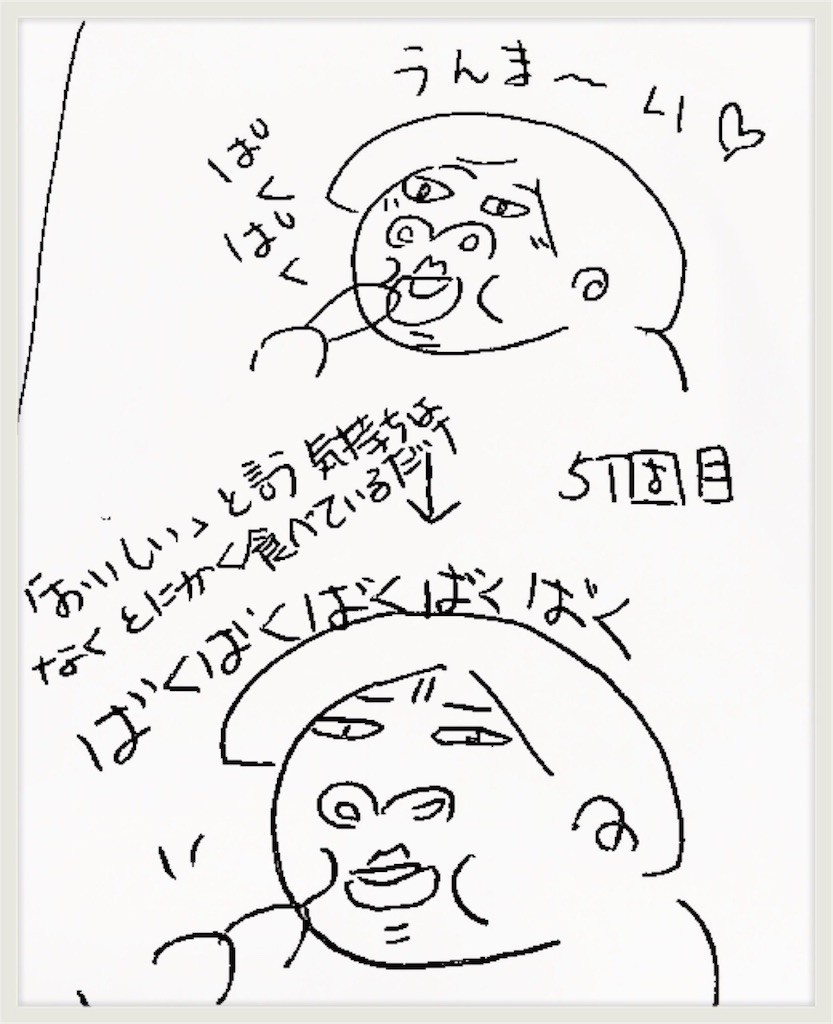 うんま〜い♡
ぱく
ぱく
「おいしい」と言う気持ちは
なくとにかく食べているだけ
51回目
ばくばくばくばくばく